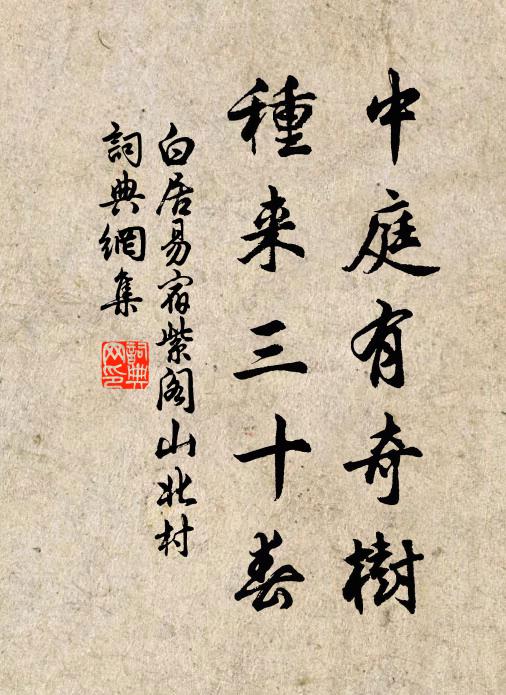 中庭有奇樹
種来三十春
白居易宿紫阁山北村
詞典網集
詞典網印